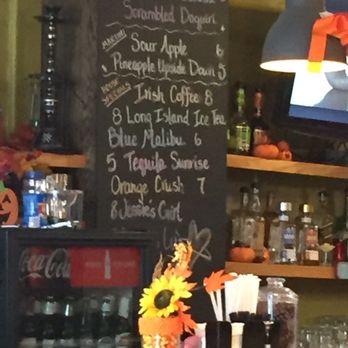 Scrambled Daquiri
MARTINI
Sour Apple 6
Pineapple Upside Down 5
HOUSE SPECIALS
Irish Coffee 8
8 Long Island Ice Tea
Blue Malibu 6
5 Tequila Sunrise
Orange Crush 7
8 Jessies Girl
Coca-Cola